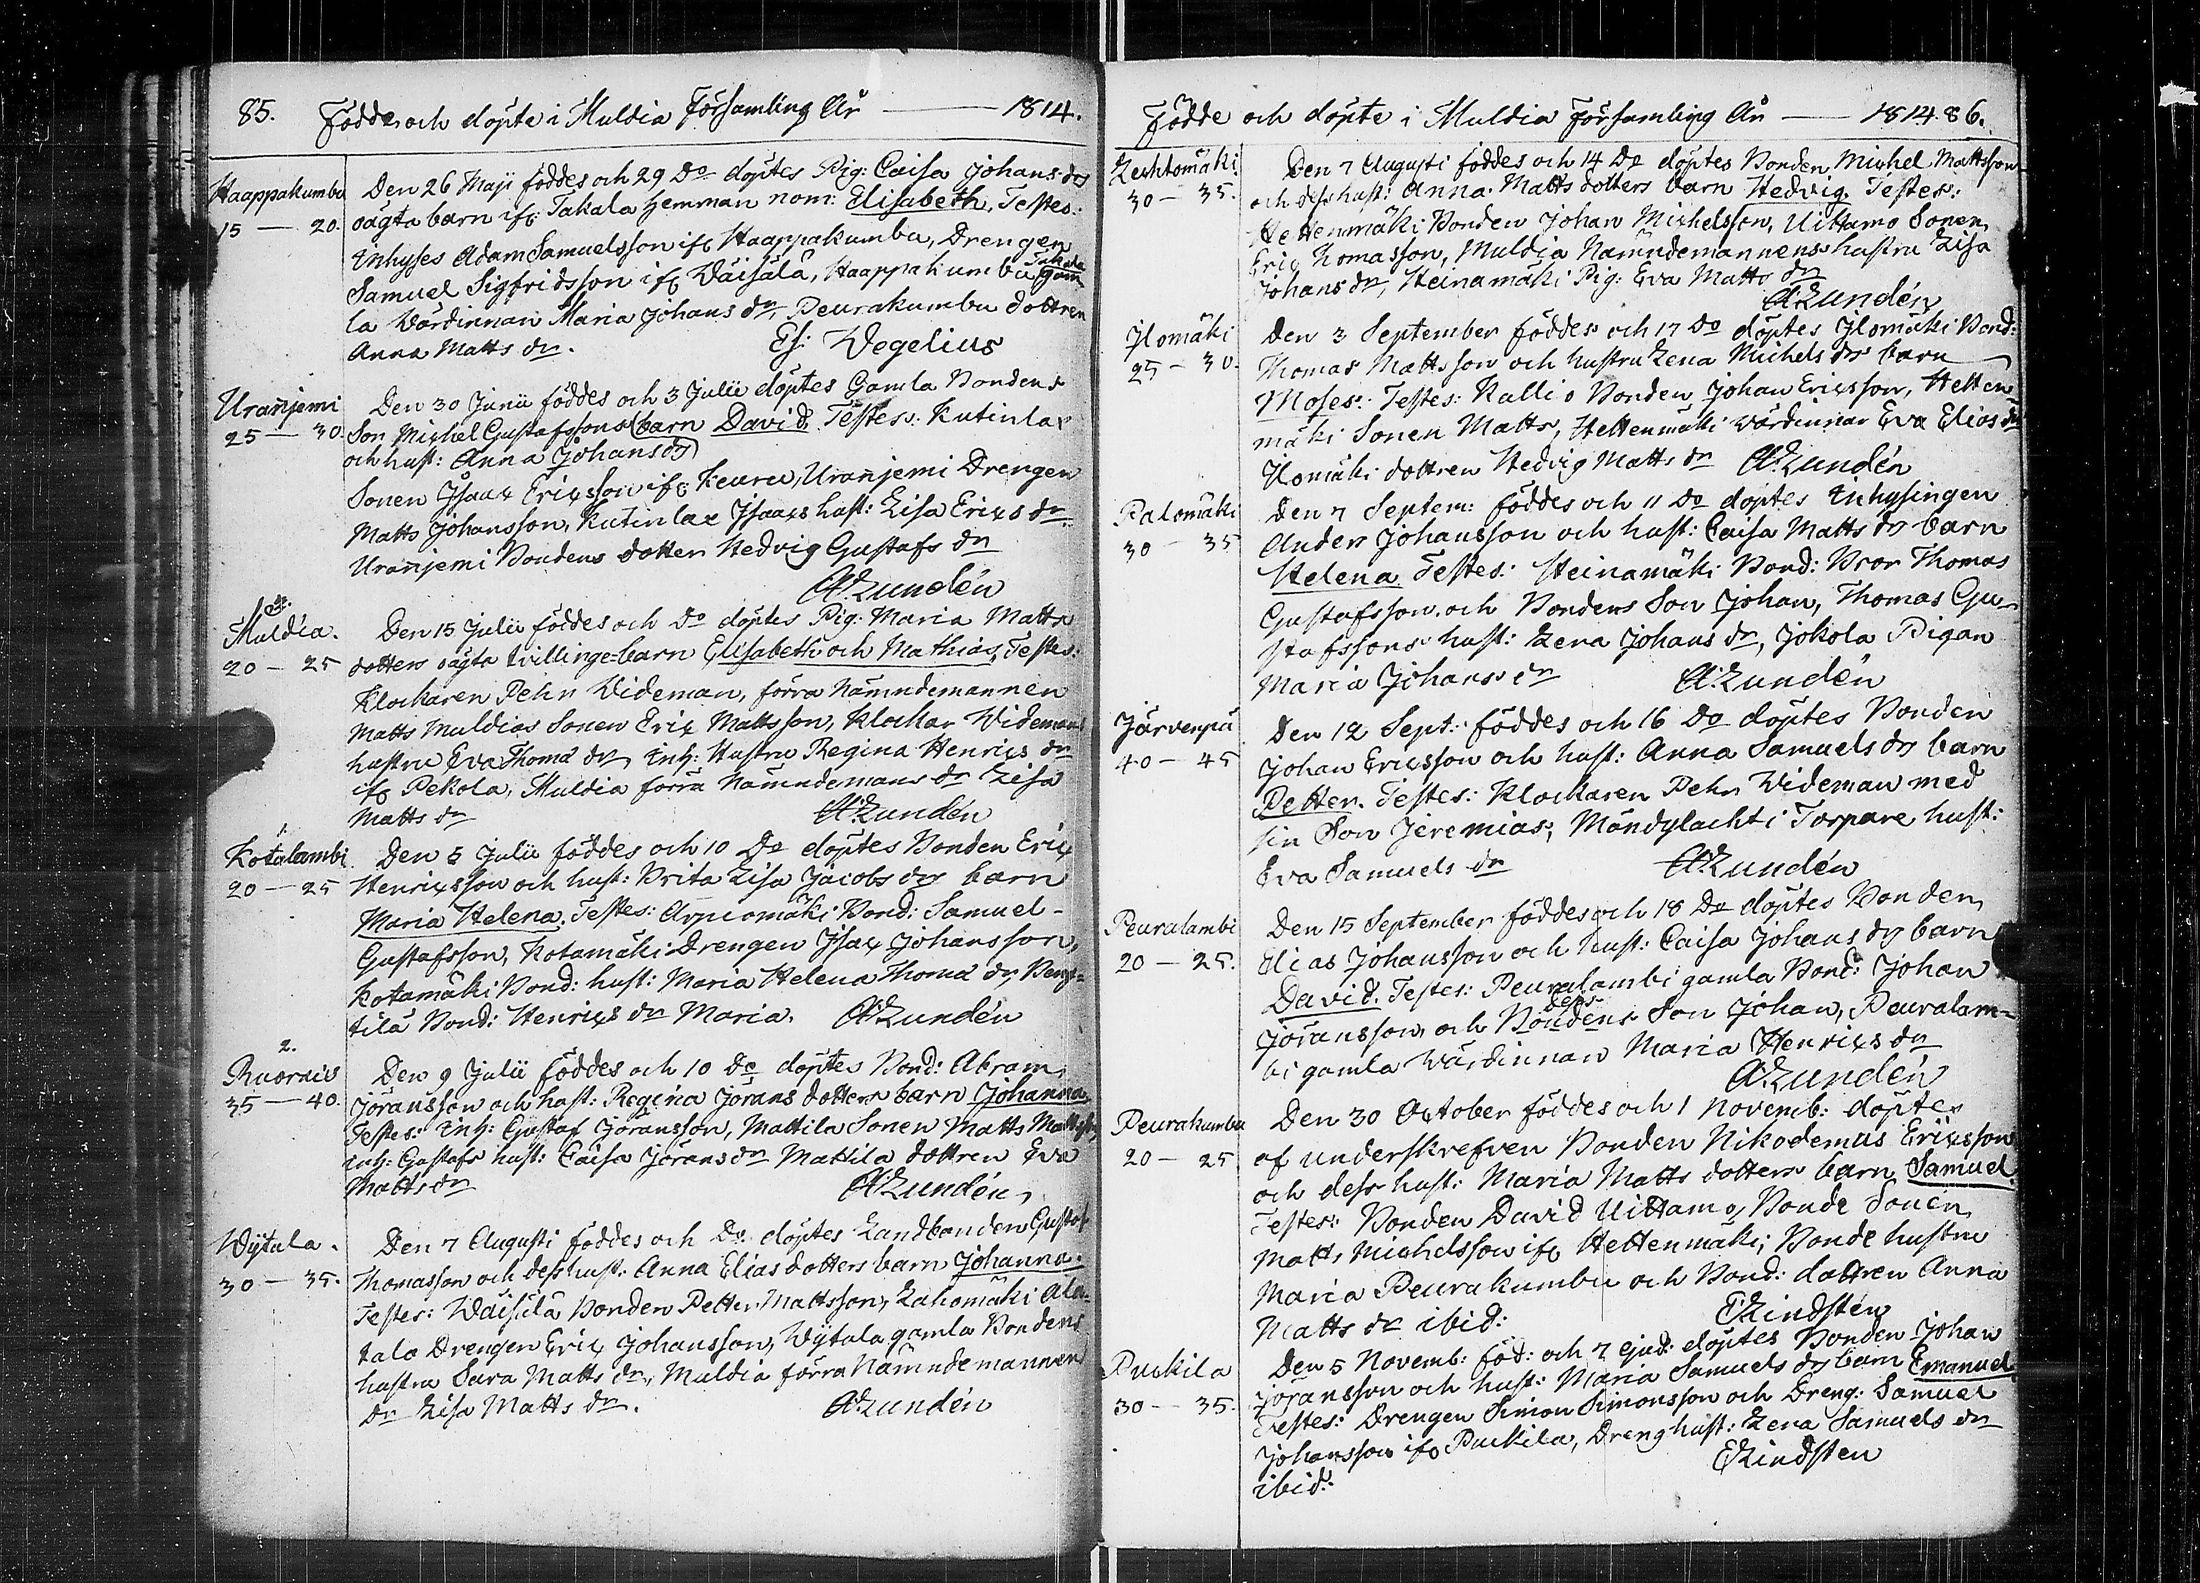 85. Födde och döpte i Muldia Församling År — 1814.
Haappakumbu
15 — 20.
Den 26 Maji föddes och 29 Do döptes Pig: Caisa Johans drs
oägta barn ifr. Takala Hemman nom: Elisabeth, Testes:
Inhyses Adam Samuelsson ifr Haappakumbu, Drengen
Samuel Sigfridsson ifr Wäisälä, Haappakumbu gam
la Wärdinnan Maria Johans dr, Peurakumbu dottren
Anna Matts dr. Es: Wegelius
Uranjemi
25 — 30
Den 30 Junii föddes och 3 Julii döptes Gamla Bondens
Son Michel Gustafssons barn David, Testes: Kutinlax
och hust: Anna Johansdr
Sonen Isaax Erixsson ifr Keuru, Uranjemi Drengen
Matts Johansson, Kutinlax Isaaxs hust: Lisa Erixs dr.
Uranjemi Bondens dotter Hedvig Gustafs dr
A:Lundén
Muldia.
20 — 25
Den 15 Julii föddes och Do döptes Pig: Maria Matts
dotters oägta tvillinge-barn Elisabeth och Mathias, Testes:
Klockaren Pehr Wideman, förra Nämndemannen
Matts Muldias Sonen Erix Mattsson, Klockar Widemans
hustru Eva Thomæ dr, Inh: Hustru Regina Henrixs dr
ifr Pekola, Muldia förra Nämndemans dr Lisa
Matts dr A:Lundén
Kotalambi
20 — 25
Den 5 Julii föddes och 10 Do döptes Bonden Erix
Henrixsson och hust: Brita Lisa Jacobs drs barn
Maria Helena. Testes: Bond: Samuel
Gustafsson, Kotamäki Drengen Isax Johansson,
Kotamäki Bond: hust: Maria Helena Thomæ dr, Beng-
tilä Bond: Henrixs dr Maria. A:Lundén
2.
Ruornis
35 — 40.
Den 9 Julii föddes och 10 Do döptes Bond: Abram
Jöransson och hust: Regina Jörans dotters barn Johanna
Testes: Inh: Gustaf Jöransson, Mattila Sonen Matts Mattsson,
Inh: Gustafs hust: Caisa Jörans dr Mattila dottren Eva
Matts dr A:Lundén
Wÿtala.
30 — 35.
Den 7 Augusti föddes och Do döptes Landbonden Gustaf
Thomasson och dess hust: Anna Elias dotters barn Johanna.
Testes: Wäisälä Bonden Petter Mattsson, Lahomäki Ala-
talo Drengen Erix Johansson, Wÿtala gamla Bondens
hustru Sara Matts dr, Muldia förra Nämndemannens
dr Lisa Matts dr. A:Lundén
Födde och döpte i Muldia Församling År — 1814. 86.
Lechtomäki
30 — 35.
Den 7 Augusti föddes och 14 Do döptes Bonden Michel Mattsson
och dess hust: Anna Matts dotters barn Hedvig. Testes:
Hettenmäki Bonden Johan Michelsson, Uittamo Sonen
Eric Thomasson, Muldia Nämndemannens hustru Lisa
Johans dr, Heinamäki Pig: Eva Matts dr
A:Lundén
Jlomäki
25 — 30.
Den 3 September föddes och 17 Do döptes Jlomäki Bond:
Thomas Mattsson och hustru Lena Michels drs barn
Moses. Testes: Kallio Bonden Johan Ericsson, Hetten-
mäki Sonen Matts, Hettenmäki Wärdinnan Eva Elias dr
Jlomäki dottren Hedvig Matts dr A:Lundén
Palomäki
30 — 35
Den 7 Septem: föddes och 11 Do döptes Inhysingen
Anders Johansson och hust: Caisa Matts drs barn
Helena. Testes: Heinamäki Bond: Bror Thomas
Gustafsson och Bondens Son Johan, Thomas Gu-
stafssons hust: Lena Johans dr, Jokola Pigan
Maria Johans dr A:Lundén
Järvenpä
40 — 45
Den 12 Sept: föddes och 16 Do döptes Bonden
Johan Ericsson och hust: Anna Samuels drs barn
Petter. Testes: Klockaren Pehr Wideman med
sin Son Jeremias, Mändylachti Torpare hust:
Eva Samuels dr A:Lundén
Peuralambi
20 — 25.
Den 15 September föddes och 18 Do döptes Bonden
Elias Johansson och hust: Caisa Johans drs barn
David. Testes: Peuralambi gamla Bond: Johan
Jöransson och Bondens Son Johan, Peuralam-
bi gamla Wärdinnan Maria Henrixs dr
A:Lundén
Peurakumbu
20 — 25
Den 30 October föddes och 1 Novemb: döptes
af underskrefven Bonden Nikodemus Erixsson
och dess hust: Maria Matts dotters barn Samuel
Testes: Bonden David Uittamo, Bonde Sonen
Matts Michelsson ifr Hettenmäki, Bonde hustru
Maria Peurakumbu och Bond: dottren Anna
Matts dr ibid: E:Lindsten
Puckila
30 — 35.
Den 5 Novemb: föd: och 7 ejusd: döptes Bonden Johan
Jöransson och hust: Maria Samuels drs barn Emanuel
Testes: Drengen Simon Simonsson och Dreng: Samuel
Johansson ifr Puckila, Dreng hust: Lena Samuels dr
ibid: E:Lindsten